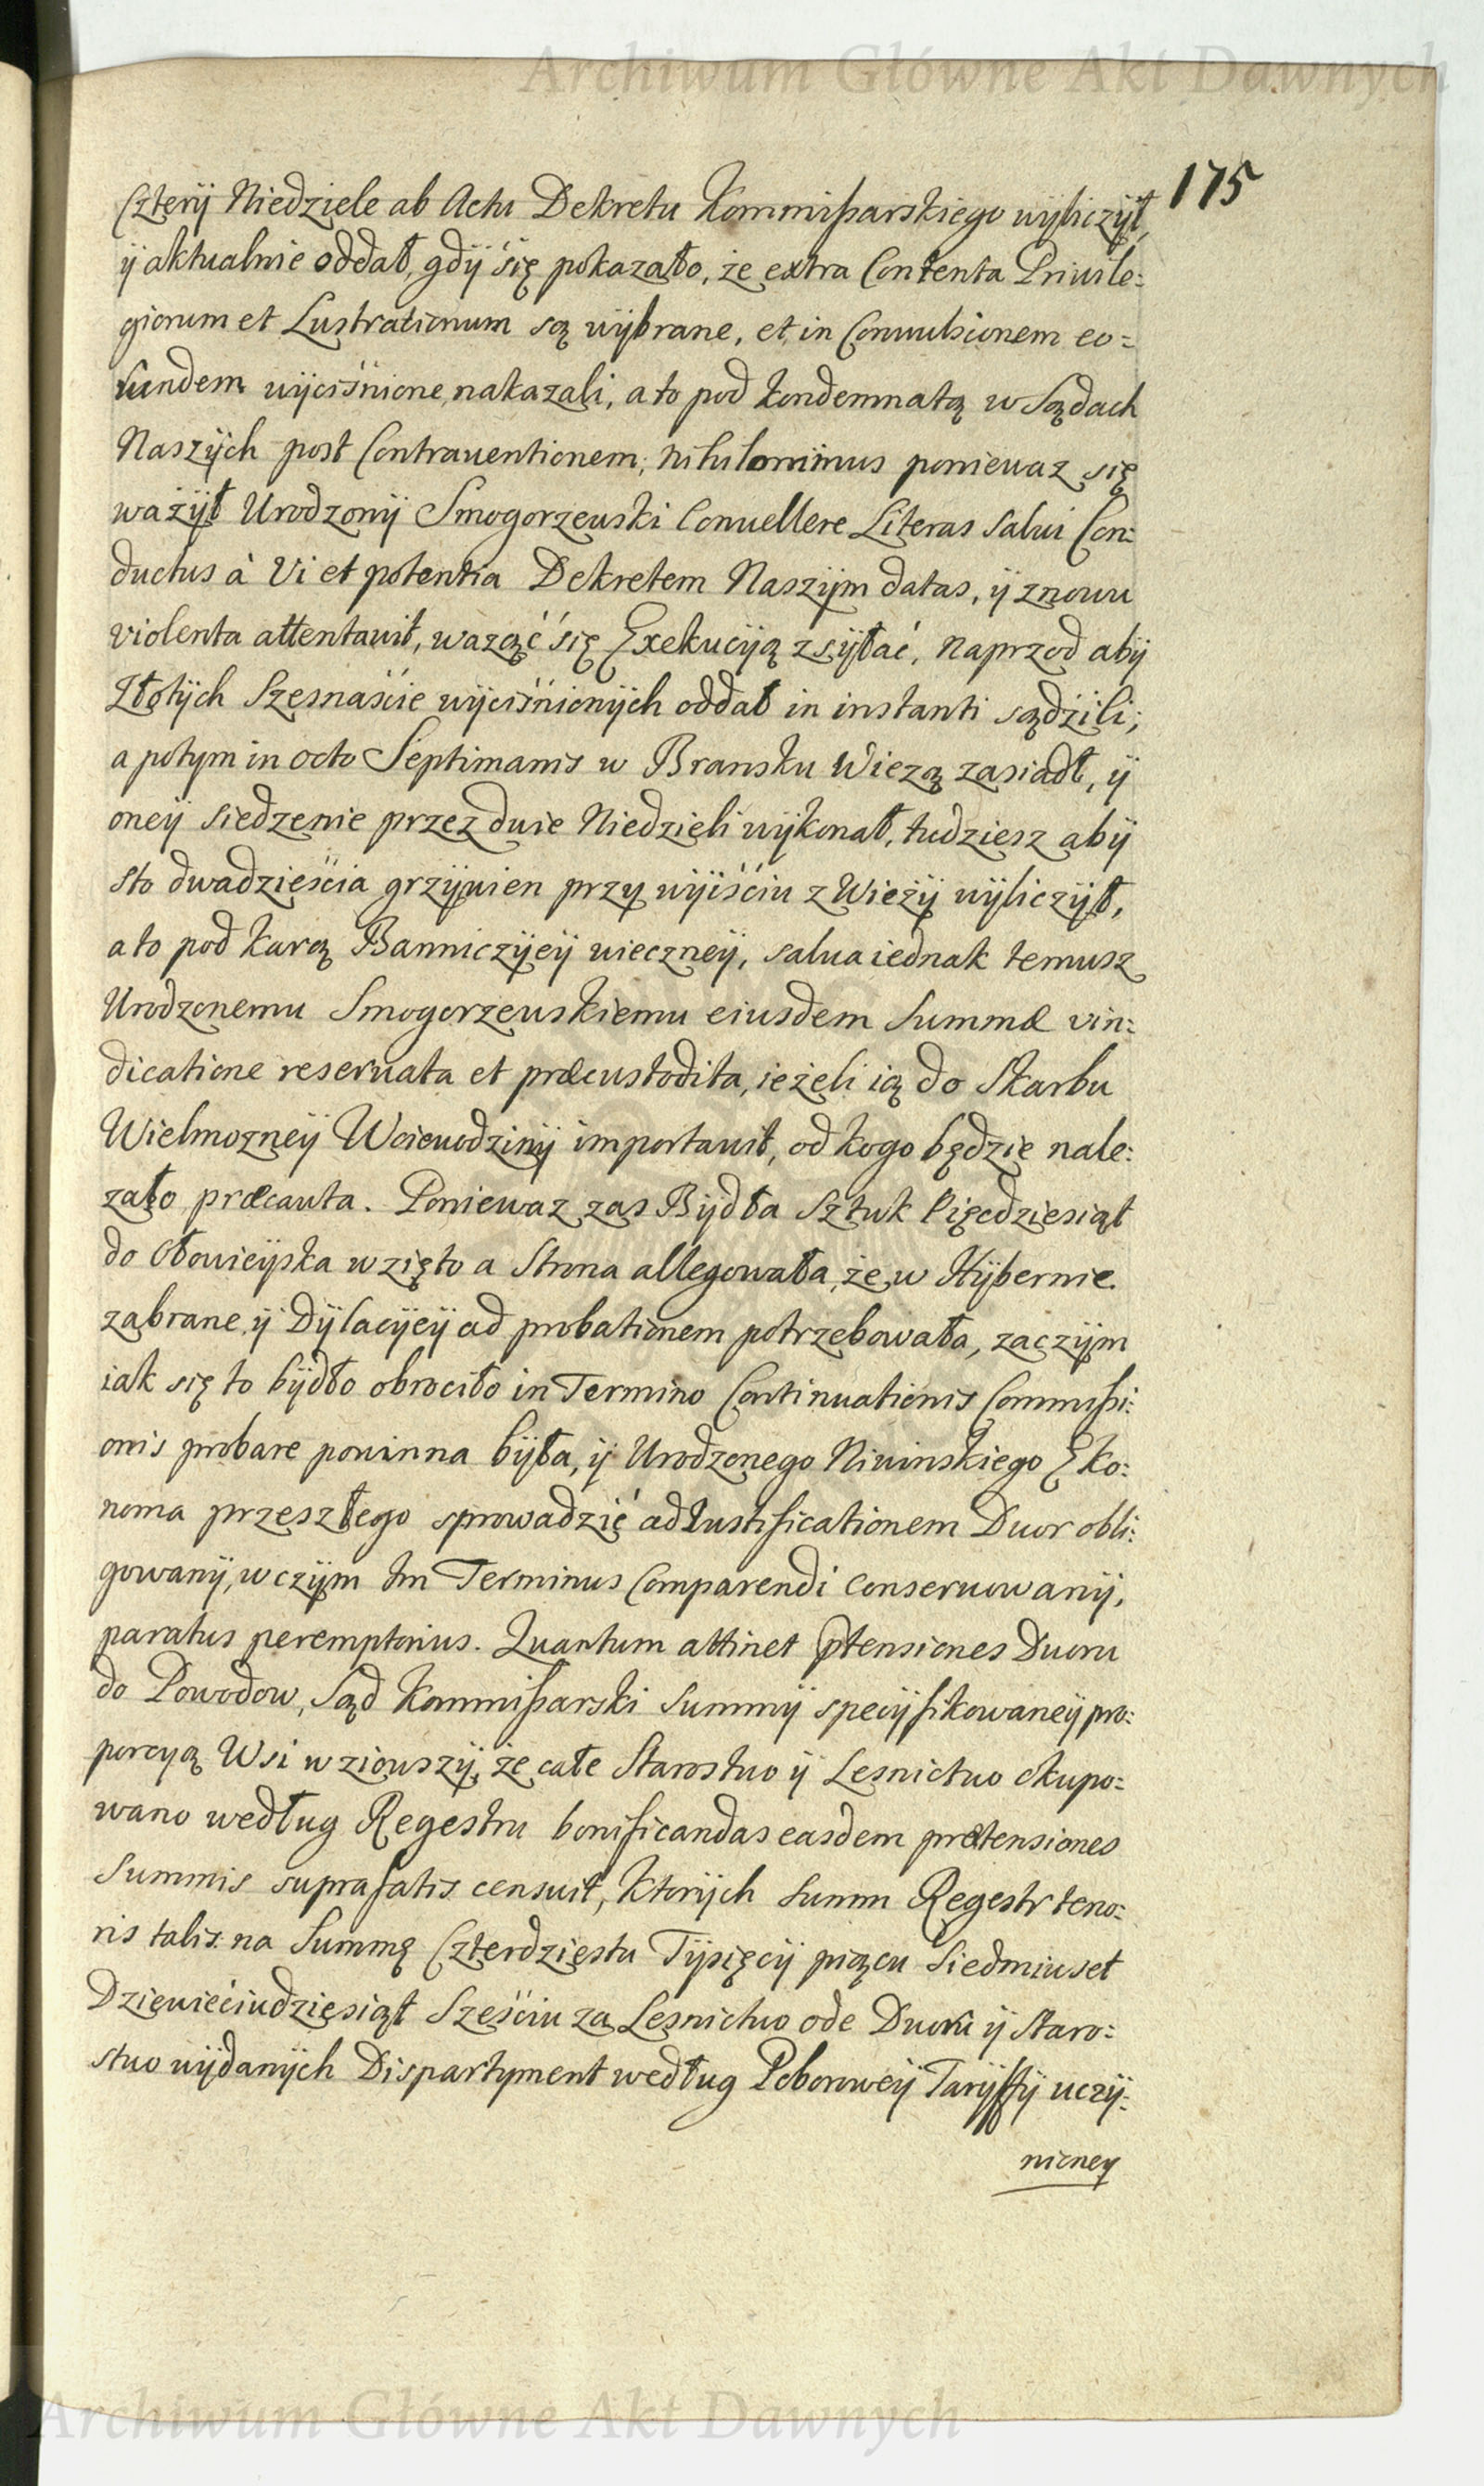 Archiwum Główne Akt Dawnych
175
Czterÿ Niedziele ab Actu Dekretu Kommißarskiego wÿliczÿł,
ÿ aktualnie oddał, gdÿ się pokazało, że extra Contenta Priuile:
giorum et Lustrationum są wÿbrane, et in Conuulsionem eo=
rundem wÿciśnione, nakazali, a to pod kondemnatą w Sądach
Naszÿch post Contrauentionem; nihilominus ponieważ się
ważÿł Urodzonÿ Smogorzewski Conuellere Literas Salui Con:
ductus à Vi et potentia Dekretem Naszÿm datas, ÿ znowu
violenta attentauit, ważąć się Exekucÿą zsÿłać, naprzod abÿ
Złotÿch Szesnaście wÿciśnionÿch oddał in instanti sądzili;
a potym in octo Septimanis w Bransku Wiezą zasiadł, ÿ
oneÿ siedzenie przez dwie Niedzieli wÿkonał, tudziesz abÿ
sto dwadzieścia grzÿwien przy wÿiściu z Wieżÿ wÿliczÿł,
a to pod karą Banniczÿeÿ wieczneÿ, salua iednak temusz
Urodzonemu Smogorzewskiemu eiusdem Summæ vin:
dicatione reseruata et præcustodita, ieżeli ią do Skarbu
Wielmozneÿ Woiewodzinÿ importauit, od kogo będzie nale:
zało præcauta. Poniewaz zas Bÿdła Sztuk Pięcdziesiąt
do Ołowieÿska wzięto a Strona allegowała, że w Hÿbernie
zabrane, ÿ Dÿlacÿeÿ ad probationem potrzebowała, zaczÿm
iak się to bÿdło obrociło in Termino Continuationis Commißi:
onis probare powinna bÿła, ÿ Urodzonego Niwinskiego Eko:
noma przeszłego sprowadzić ad Iustificationem Dwor obli:
gowanÿ, w czÿm Im Terminus Comparendi conseruowanÿ,
paratus peremptorius. Quantum attinet prtensiones Dworu
do Powodow, Sąd Kommißarski Summÿ specÿfikowaneÿ pro:
porcyą Wsi wziowszÿ, że całe Starostwo ÿ Lesnictwo okupo=
wano według Regestru bonificandas easdem prætensiones
Summis suprafatis censuit, ktorÿch Summ Regestr teno:
ris talis. na Summę Czterdziestu Tÿsięcÿ piącu Siedmiuset
Dziewiećiudziesiąt Sześciu za Lesnictwo ode Dworu ÿ Staro:
stwo wÿdanÿch Dispartyment według Poboroweÿ Tarÿffÿ uczÿ:
nioney
Archiwum Główne Akt Dawnych